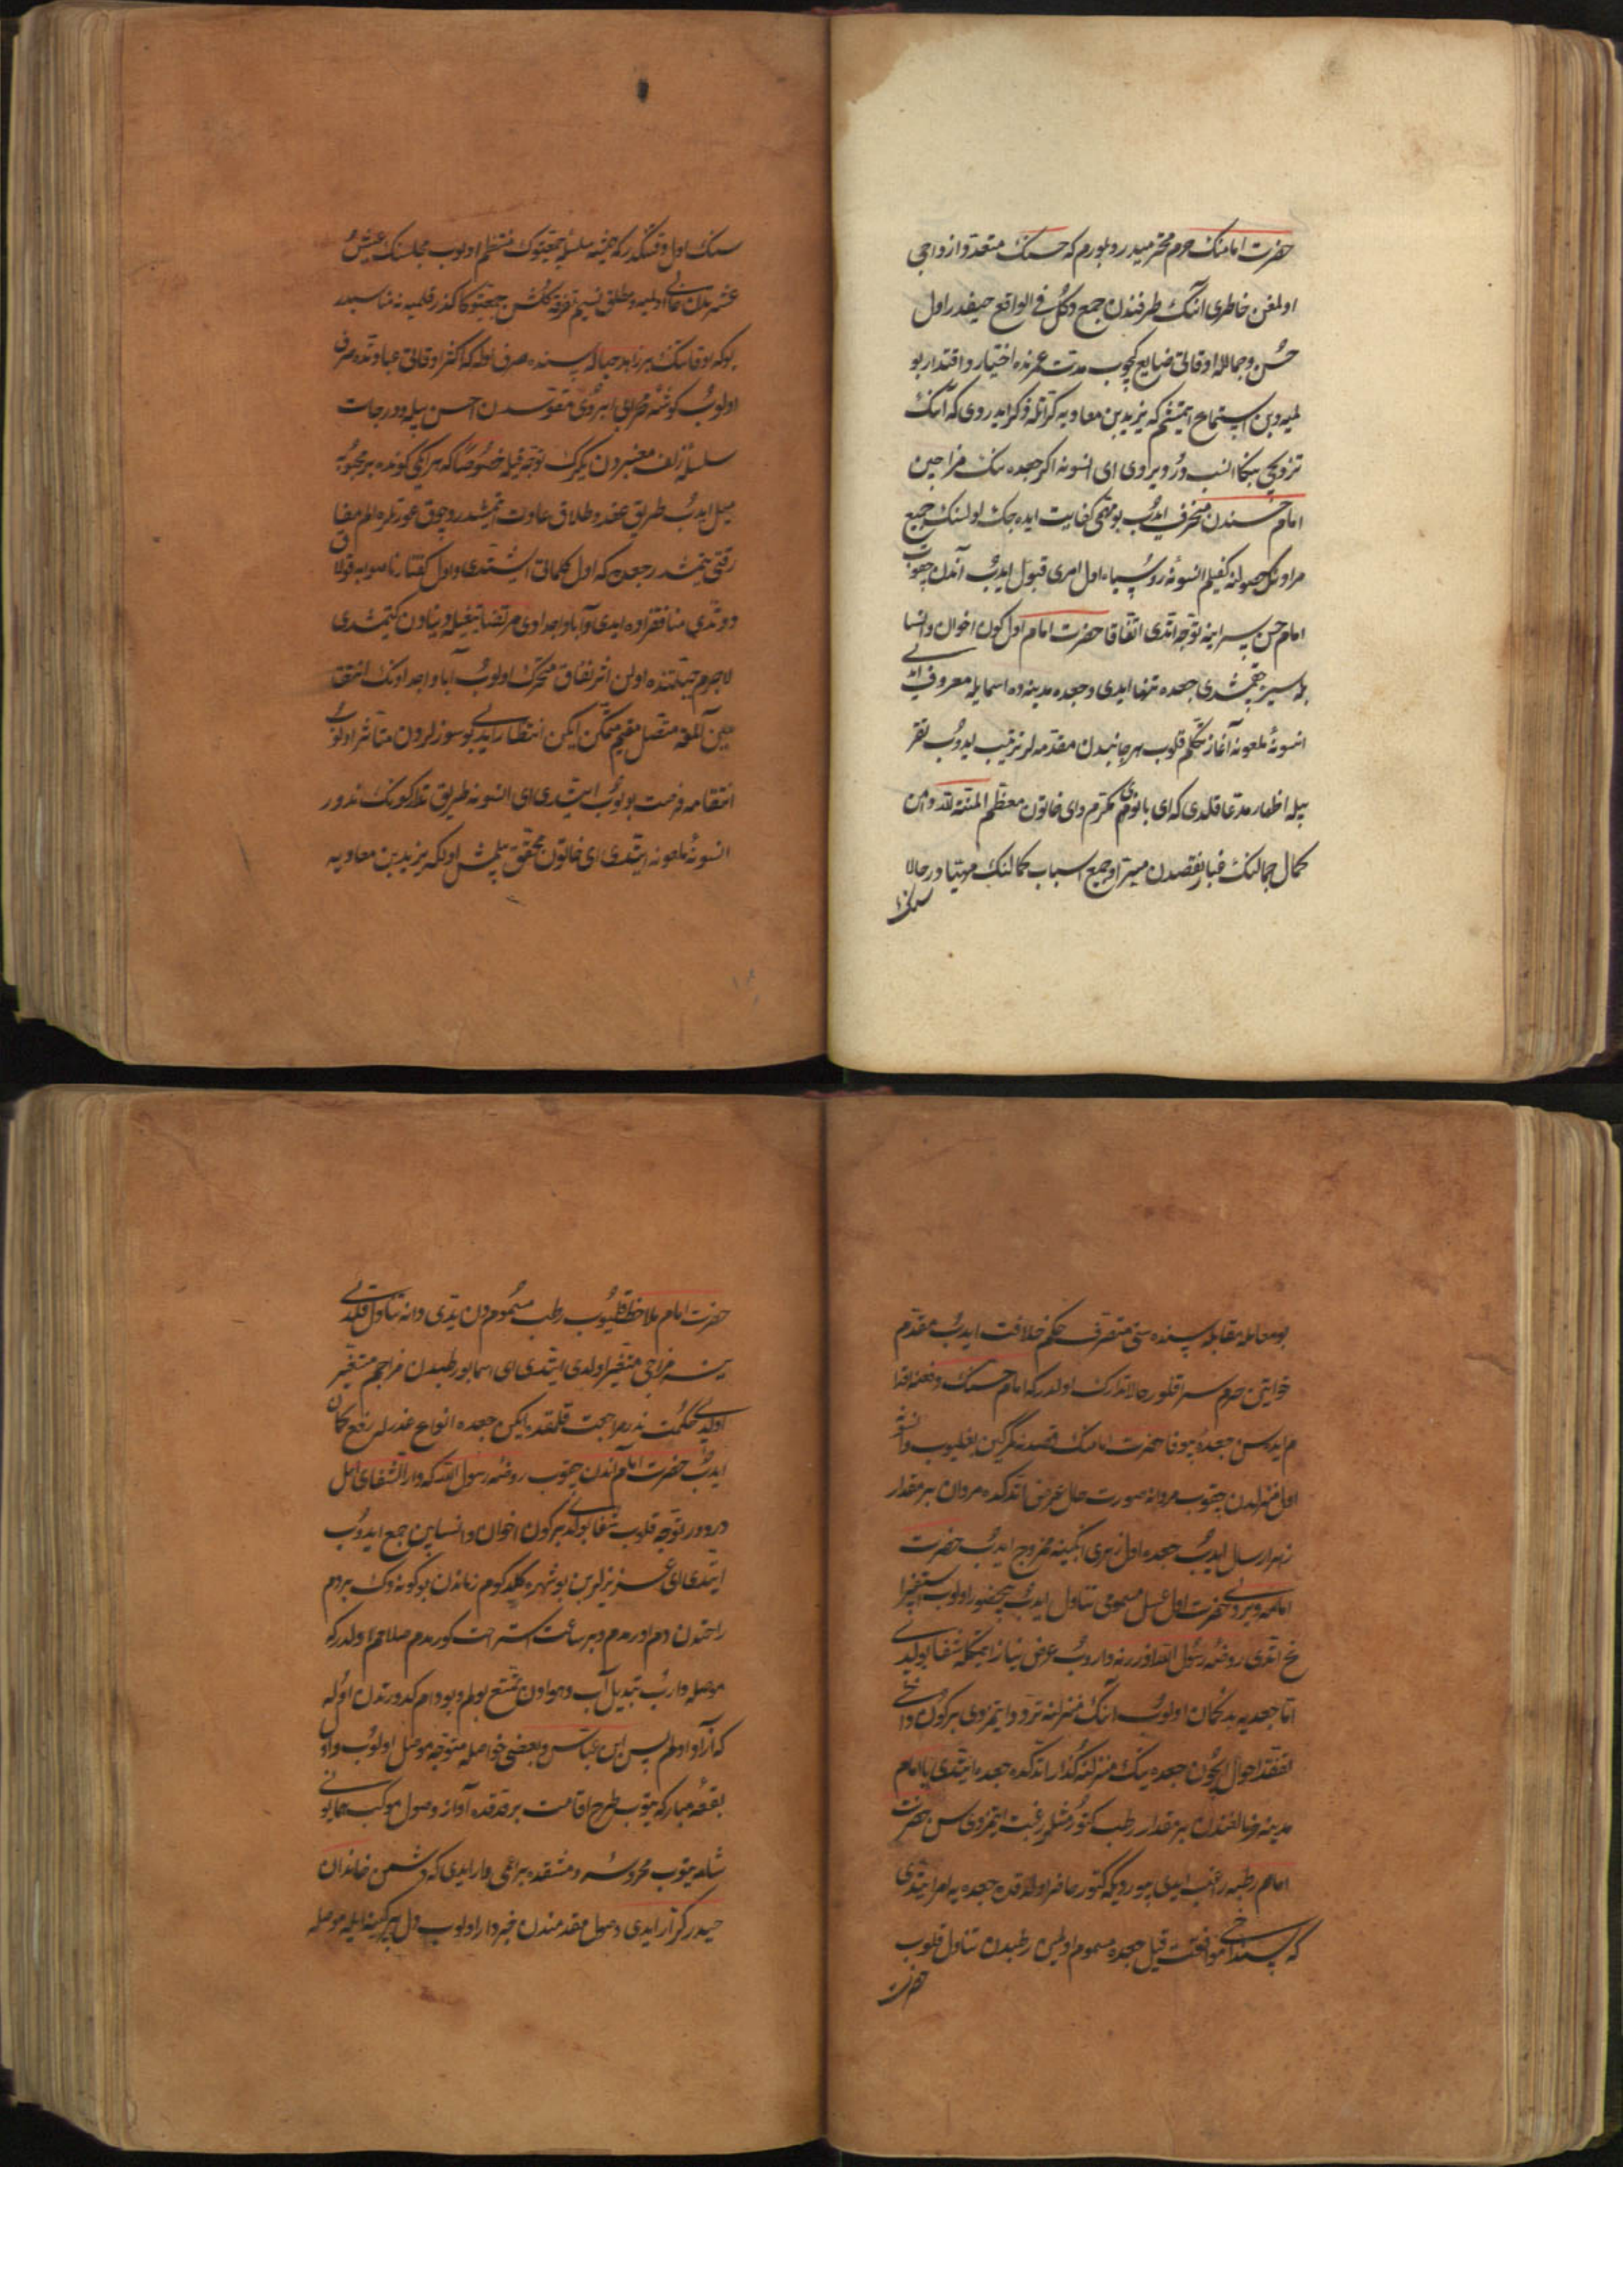 حضرت امامنك حرم محترميدر و بلورم كه حسنك متعدد ازواجى
اولمغن خاطرى انك طرفندن جمع دكل فى الواقع حيفدر اول
حسن و جمالله اوقاتى ضايع كچوب مدت عمرنده اختيار و اقتدار بو
لميه و بن استماع ايتمشم كه يزيد بن معاويه كراتله ذكر ايدردى كه آنك
تزويجى بنكا انسب در و يردى اى انسونه اكر جعده نك مزاجين
امام حسندن منحرف ايدوب بو مهمى كفايت ايده جك اولسنك جميع
مرادنك حصولنه كفيلم انسونه روسياه اول امرى قبول ايدوب آندن چقوب
امام حسن سراينه توجه اتدى اتفاقا حضرت امام اول كون اخوان و انسا
بله سيره چقمشدى جعده تنها ايدى و جعده مدينه ده اسما يله معروف ايدى
انسونه ملعونه آغاز تكلم قلوب هر جانبدن مقدمه لر ترتيب ايدوب تقر
يبله اظهار مدعا قلدى كه اى بانوى مكرم و اى خاتون معظم المنة لله دامن
كمال جمالنك غبار نقصدن مبرا و جميع اسباب كمالنك مهيا در حالا
سنك
سنك اول وقتكدر كه هميشه سلسله جمعيتوك منتظم اولوب مجلسنك عيش
عشرتدن خالى اولميه و مطلق نسيم تفرقه كلشن جمعيتوكا كذر قلميه نه مناسبدر
بو كه اوقاتنك بر زاهد حباله سنده صرف اوله كه اكثر اوقاتى عبادتده صرف
اولوب كوشه محرابى ابروى مقوسدن احسن بيله و درجات
سلسله زلف معنبردن يكرك توجه قيله خصوصا كه هر ايكى كونده بر محبوبه
ميل ايدوب طريق عقد و طلاق عادت ايتمشدر و چوق عورتلره الم مفا
رقتى يتمشدر جعده كه اول كلماتى ايشتدى و اول كفتار ناصوابه قولاق
دوتدى منافقزاده ايدى و آبا و اجدادى مرتضا تيغيله دنيادن كتمشدى
لاجرم جبلتنده اولن اثر نفاق متحرك اولوب آبا و اجدادنك انتقا
مين آلمغه متصل مقيم ممكن ايكن انتظار ايدردى بو سوزلردن متاثر اولوب
انتقامه فرصت بولوب ايتدى اى انسونه طريق تداركونك ندور
انسونه ملعونه ايتدى اى خاتون محقق بيلمش اول كه يزيد بن معاويه
بو معامله مقابله سنده سنى متصرف حكم خلافت ايدوب مقدم
خواتين حرم سرا قلور حالا تدارك اولدر كه امام حسنك دفعنه اقدا
م ايده سن جعده بيوفا حضرت امامنك قصدنه كمركين بغليوب و انسونه
اول منزلدن چقوب مروانه صورت حال عرض اتدكده مروان بر مقدار
زهر ارسال ايدوب جعده اول زهرى انكبينه ممزوج ايدوب حضرت
امامه ويردى حضرت اول عسل مسمومى تناول ايدوب بيحضور اولوب استفرا
غ اتدى روضه رسول الله اوزرنه واروب عرض نياز ايتمكله شفا بولدى
اما جعديه بدكمان اولوب انك منزلنه تردد ايتمزدى بر كون داخى
تفقد احوال ايچون جعده نك منزلنه كذار اتدكده جعده ايتدى يا امام
مدينه نخلستاندن بر مقدار رطب كتورمشلر رغبت ايتمزميسن حضرت
امام رطبه راغب ايدى بيوردى كه كتور حاضر اولدقده جعده يه امر ايتدى
كه سن داخى موافقت قيل جعده مسموم اولمين رطبدن تناول قلوب
حضرت
حضرت امام ملاحظه قلميوب رطب مسمومدن يدى دانه تناول قلدى
ينه مزاجى متغير اولدى ايتدى اى اسما بو رطبدن مزاجم متغير
اولدى حكمت ندر مراجعت قلمقده ايكن جعده انواع عذرله رفع كمان
ايدوب حضرت امام اندن چقوب روضه رسول الله كه دار الشفاى اهل
درددر توجه قلوب شفا بولدى بر كون اخوان و انسابين جمع ايدوب
ايتدى اى عزيزلر بن بو شهره كلدكوم زماندن بو كونه دك بر دم
راحتدن دم اورمدم و بر ساعت استراحت كورمدم صلاحم اولدر كه
موصله واروب تبديل آب و هوادن تمتع بولم و بو دام كدورتدن اوله
كه آزاد اولم پس ابن عباس و بعضى خواصله متوجه موصل اولوب و اول
بقعه مباركه يتوب طرح اقامت برقدقده آوازه وصول موكب همايونى
شامه يتوب محروسه دمشقده بر اعمى وار ايدى كه دشمن خاندان
حيدر كرار ايدى وصول مقدمندن خبردار اولوب دل پر كينه ايله موصله